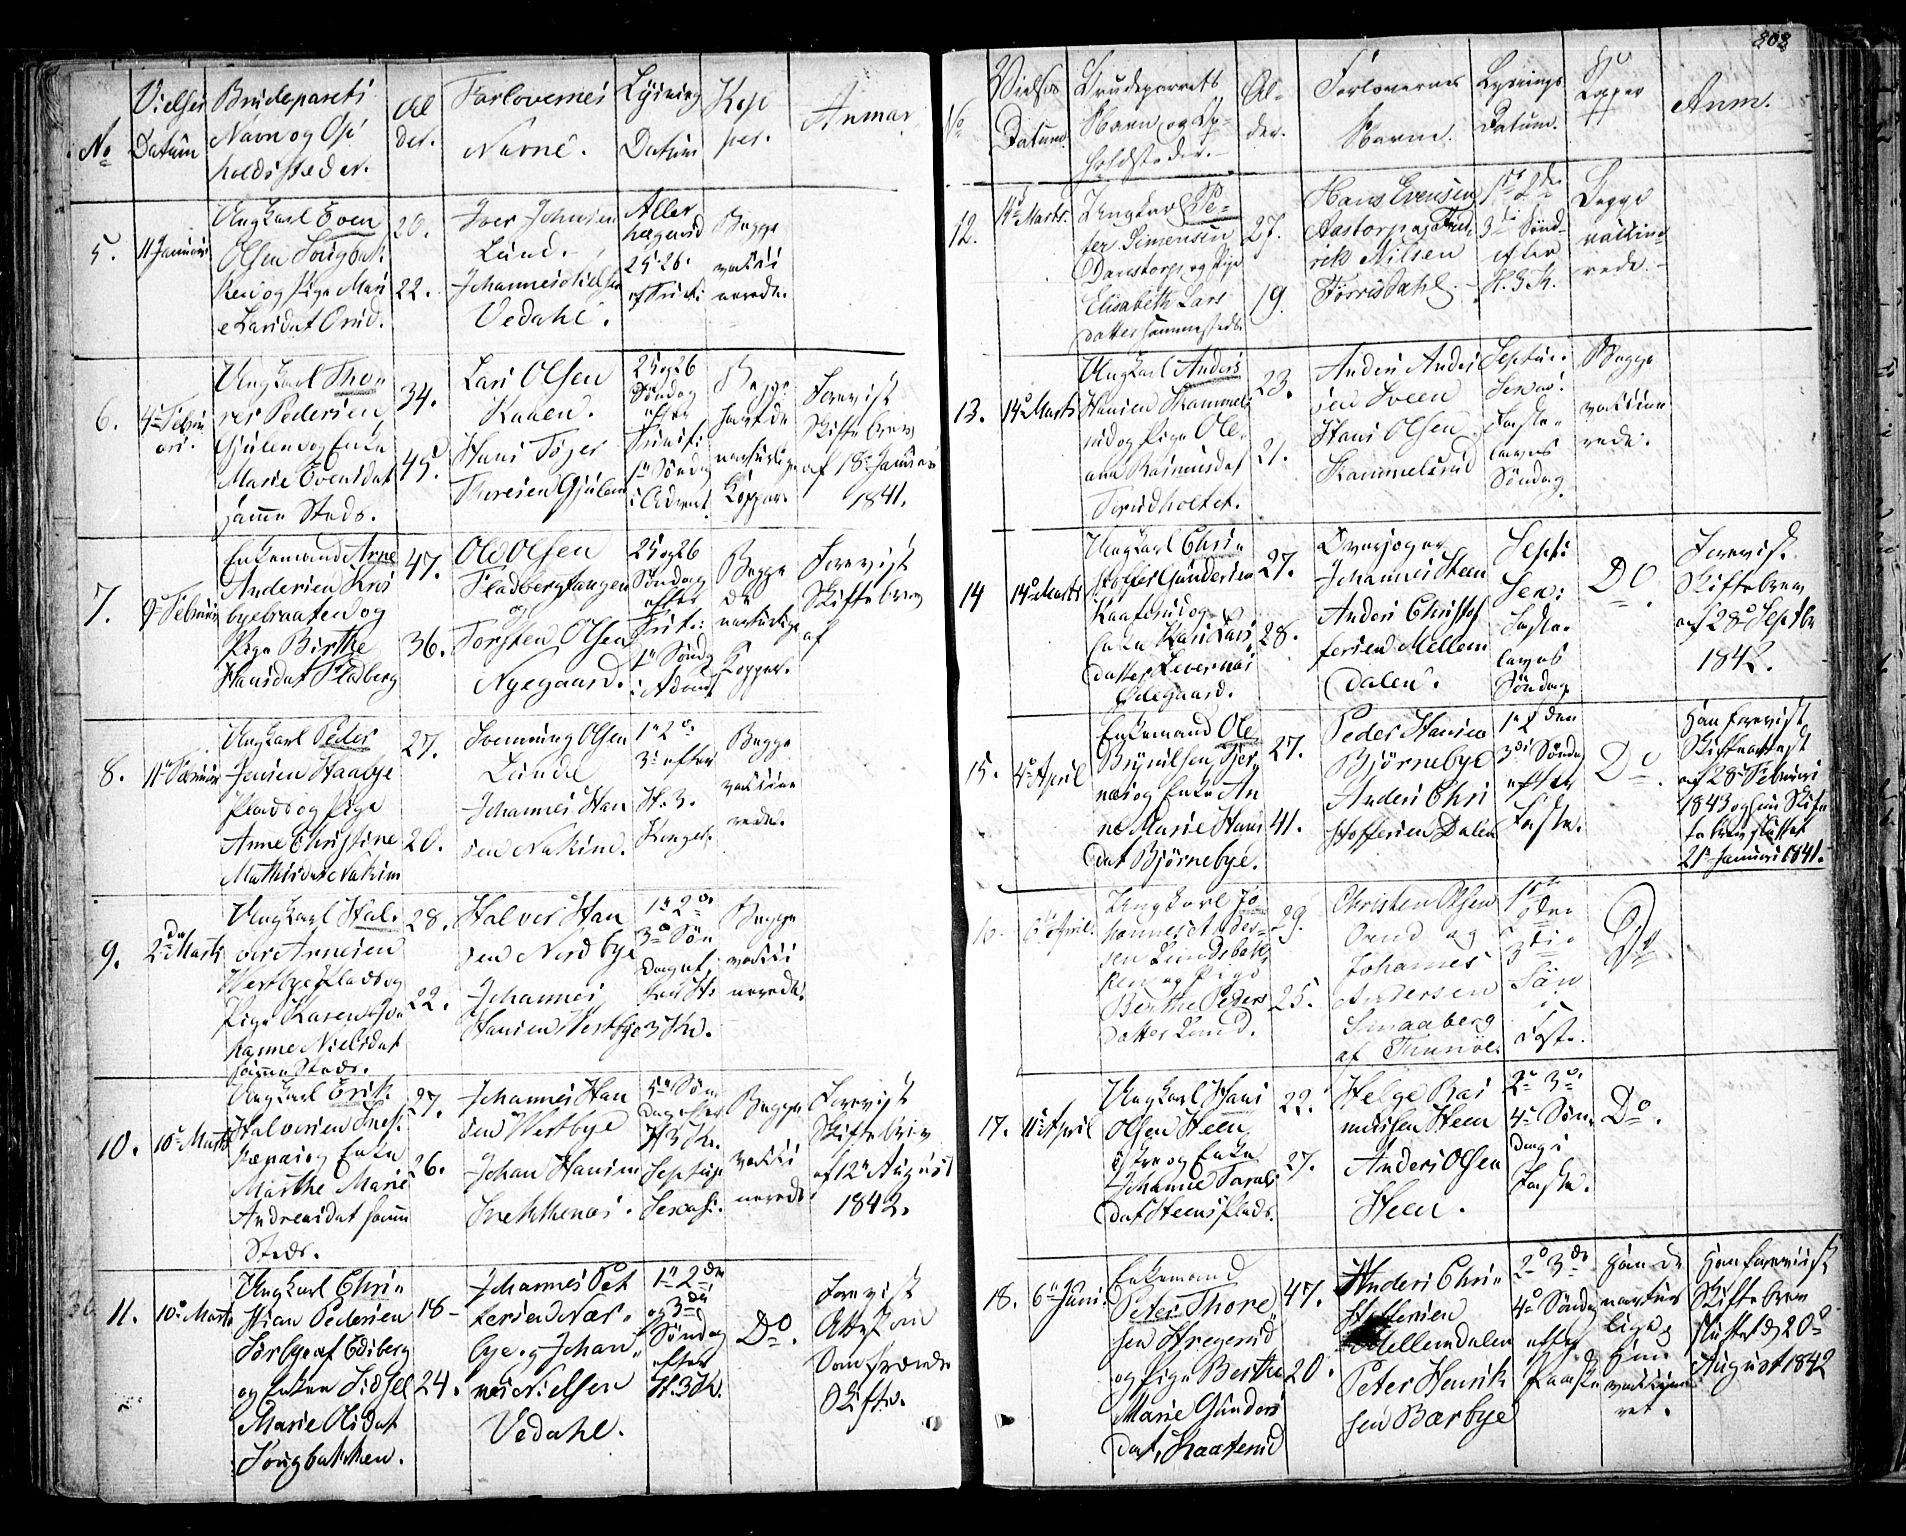 No
Vielses
Datum
Brudeparets
Navn og Op
holdssteder.
Al
der.
Forlovernes
Navne.
Lysning
Datum
Kop
per.
Anmær
5.
11 Januari
Ungkarl Even
Olsen Sougbak
ken og Pige Mari
e Larsdat Orud.
20.
22.
Iver Johnsen
Lund.
Johannes Nielsen
Vedahl.
Aller
helgensd
25. 26.
ef Trinit:
Begge
vacci
nerede.
6.
4de Febru
ari.
Ungkarl Tho
res Pedersen
Gjulem og Enke
Marie Evensdat
samme Steds.
34.
45.
Lars Olsen
Kaaen.
Hans Tøger
Thoresen Gjulem
25 og 26
Søndag
efter
Trinit:
1ste Søndag
i Advent.
Begge
havt de
naturlige
Kopper.
Forevist
Skiftebrev
af 18de Januar
1841.
7.
9de Februar
Enkemand Arne
Andersen Kros
byebraaten og
Pige Birthe
Hansdat Fladberg
47.
36.
Ole Olsen
Fladbergtangen
og
Torsten Olsen
Nyegaard.
25 og 26
Søndag
efter
Trit:
1ste Sønd
i Advent
Begge
de
naturlige
Kopper.
Forevist
Skiftebrev
af
8.
11te Februar
Ungkarl Peder
Jensen Haabye
Plads og Pige
Anne Christine
Mathisdat Nakim
27.
20.
Svenning Olsen
Lunde
Johannes Han
sen Nakim.
1ste 2de
3de efter
H. 3.
Konger.
Begge
vaccine
rede.
9.
2den Marts
Ungkarl Hal
vor Arnesen
Westbye Plads og
Pige Karen Jo
hanne Nielsdat
samme Steds.
28.
22.
Halvor Han
sen Nordbye
Johannes
Hansen Westbye
1ste 2de
3de Søn
dag ef
ter H:
3 K.
Begge
vacci
nerede.
10.
10de Marts
Ungkarl Erik
Halvorsen Snek
kenæs og Enke
Marthe Marie
Andreasdat samme
Steds.
27.
26.
Johannes Han
sen Westbye
Johan Hansen
Snekkenæs.
5te Søn
dag efter
H 3 K.
Septuag
Sexag.
Begge
vacci
nerede
Forevist
Skiftebrev
af 12te August
1842.
11.
10de Marts
Ungkarl Chri
stian Pedersen
Sørbye af Edsberg
og Enken Sidsel
Marie Olsdat
Sougbakken.
18
24.
Johannes Pet
tersen Nær
bye og Johan
nes Nielsen
Vedahl.
1ste 2den
og 3die
Søndag
efter
H. 3 K.
Do.
Forevist
Attest om
Skifte.
308
No
Vielses
Datum.
Brudeparrets
Navn og Op-
holdssteder.
Al-
der.
Forlovernes
Navn.
Lysnings
Datum.
Kopper
Anm.
12.
11te Marts.
Ungkarl Pe-
ter Simensen
Danstorp og Pige
Elisabeth Lars
datter sammesteds.
27.
19.
Hans Evensen
Aastorp og Fred
rik Nilsen
Størrisdahl.
1ste 2den
3die Sønd
efter
H. 3 K.
Begge
vaccine
rede.
13.
14de Marts
Ungkarl Anders
Hansen Skammels
rud og Pige Ole
ana Rasmusdat
Torudholtet.
23.
21.
Anders Anders
sen Sveen
Hans Olsen
Skammelsrud
Septua.
Sexag.
Faste
lavns
Søndag.
Begge
vaccine
rede.
14
14de Marts
Ungkarl Chri
stoffer Gundersen
Kaaterud og
Enke Kari Lars
datter Levernæs
Ødegaard.
27.
28.
Overjæger
Johannes Steen
Anders Christof
fersen Mellem
dalen.
Sept:
Sex:
Faste
lavns
Søndag.
Do.
Forevist
Skiftebrev
af 28de Septbr
1842.
15.
4de April
Enkemand Ole
Brynilsen Bjer
næs og Enke An
ne Marie Hans
dat Bjørnebye.
27.
41.
Peder Hansen
Bjørnebye
Anders Chri
stoffersen Dalen
1ste 2den
3die Søndag
efter
Faste.
Do.
Han forevist
Skifteattest
af 28de Februari
1843 og hun Skif
tebrev sluttet
21de Januari 1841.
16.
6te April.
Ungkarl Jo
hannes Ander-
sen Lundsbak
ken og Pige
Berthe Peders
datter Lund.
29.
25.
Christen Olsen
Orud og
Johannes
Andersen
Smaaberg
af Thunøe.
1ste
2den
3die
Søn
i
Faste.
Do
17.
11te April
Ungkarl Hans
Olsen Steen
østre og Enke
Johanne Taral
dat Steens Plads.
22.
27.
Helge Ras
mussen Steen
Anders Olsen
Steen.
2de 3de
4de Søn
dag i
Faste.
Do.
18.
6te Juni.
Enkemand
Peter Thore
sen Stregerud
og Pige Berthe
Marie Gunders
dat, Kaaterud
47.
20.
Anders Chri
stoffersen
Mellemdalen
Peter Henrik
sen Bærbye
2de 3de
4de Søndag
efter
Paaske
Han de
natur
lige,
Hun
vaccine
ret.
Han forevist
Skiftebrev
sluttet d. 20de
August 1842